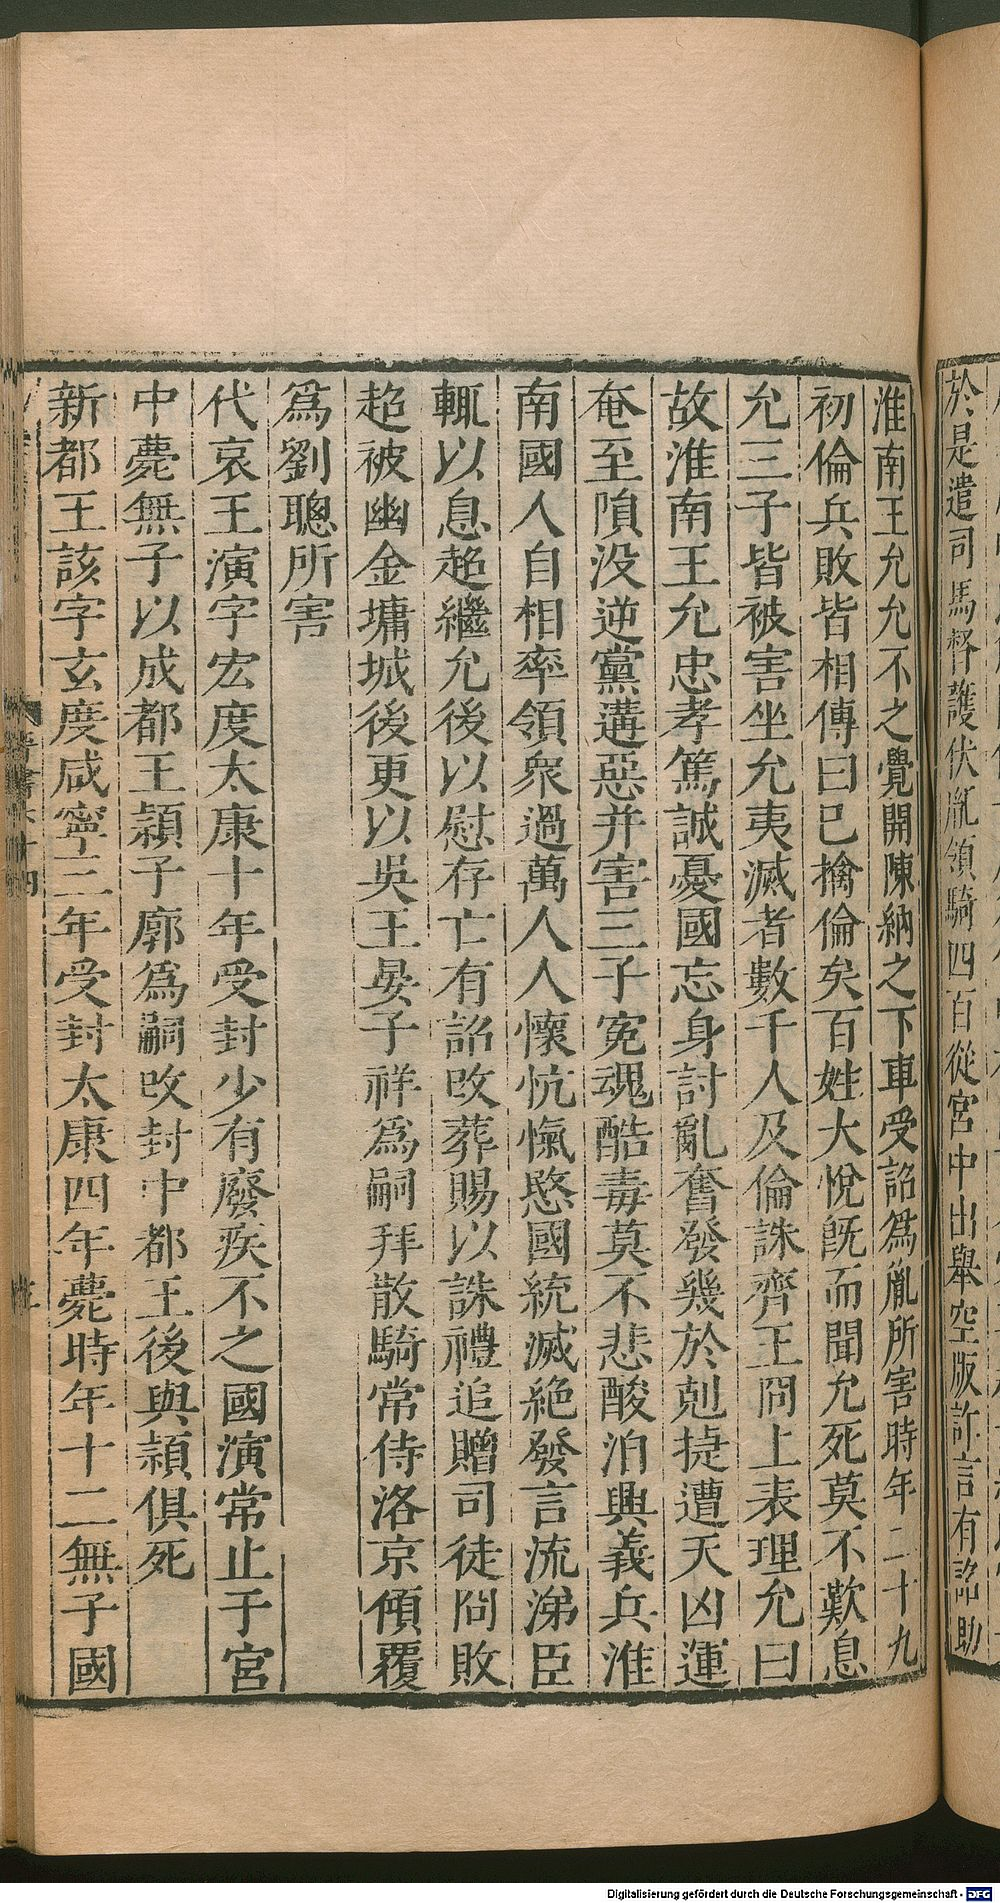 於是遣司馬督護伏胤領騎四百從宮中出舉空版詐言有詔助
淮南王允允不之覺開陳納之下車受詔爲胤所害時年二十九
初倫兵敗皆相傳曰已擒倫矣百姓大悅旣而聞允死莫不歎息
允三子皆被害坐允夷滅者數千人及倫誅齊王冏上表理允曰
故淮南王允忠孝篤誠憂國忘身討亂奮發幾於剋捷遭天凶運
奄至隕没逆黨遘惡并害三子寃魂酷毒莫不悲酸洎興義兵淮
南國人自相率領衆過萬人人懷忼愾愍國統滅絶發言流涕臣
輒以息超繼允後以慰存亡有詔改葬賜以誅禮追贈司徒冏敗
超被幽金墉城後更以吳王晏子祥爲嗣拜散騎常侍洛京傾覆
爲劉聰所害
代哀王演字宏度太康十年受封少有廢疾不之國演常止于宮
中薨無子以成都王穎子廓爲嗣改封中都王後與穎俱死
新都王該字玄度咸寧三年受封太康四年薨時年十二無子國
Digitalisierung gefördert durch die Deutsche Forschungsgemeinschaft - DFG